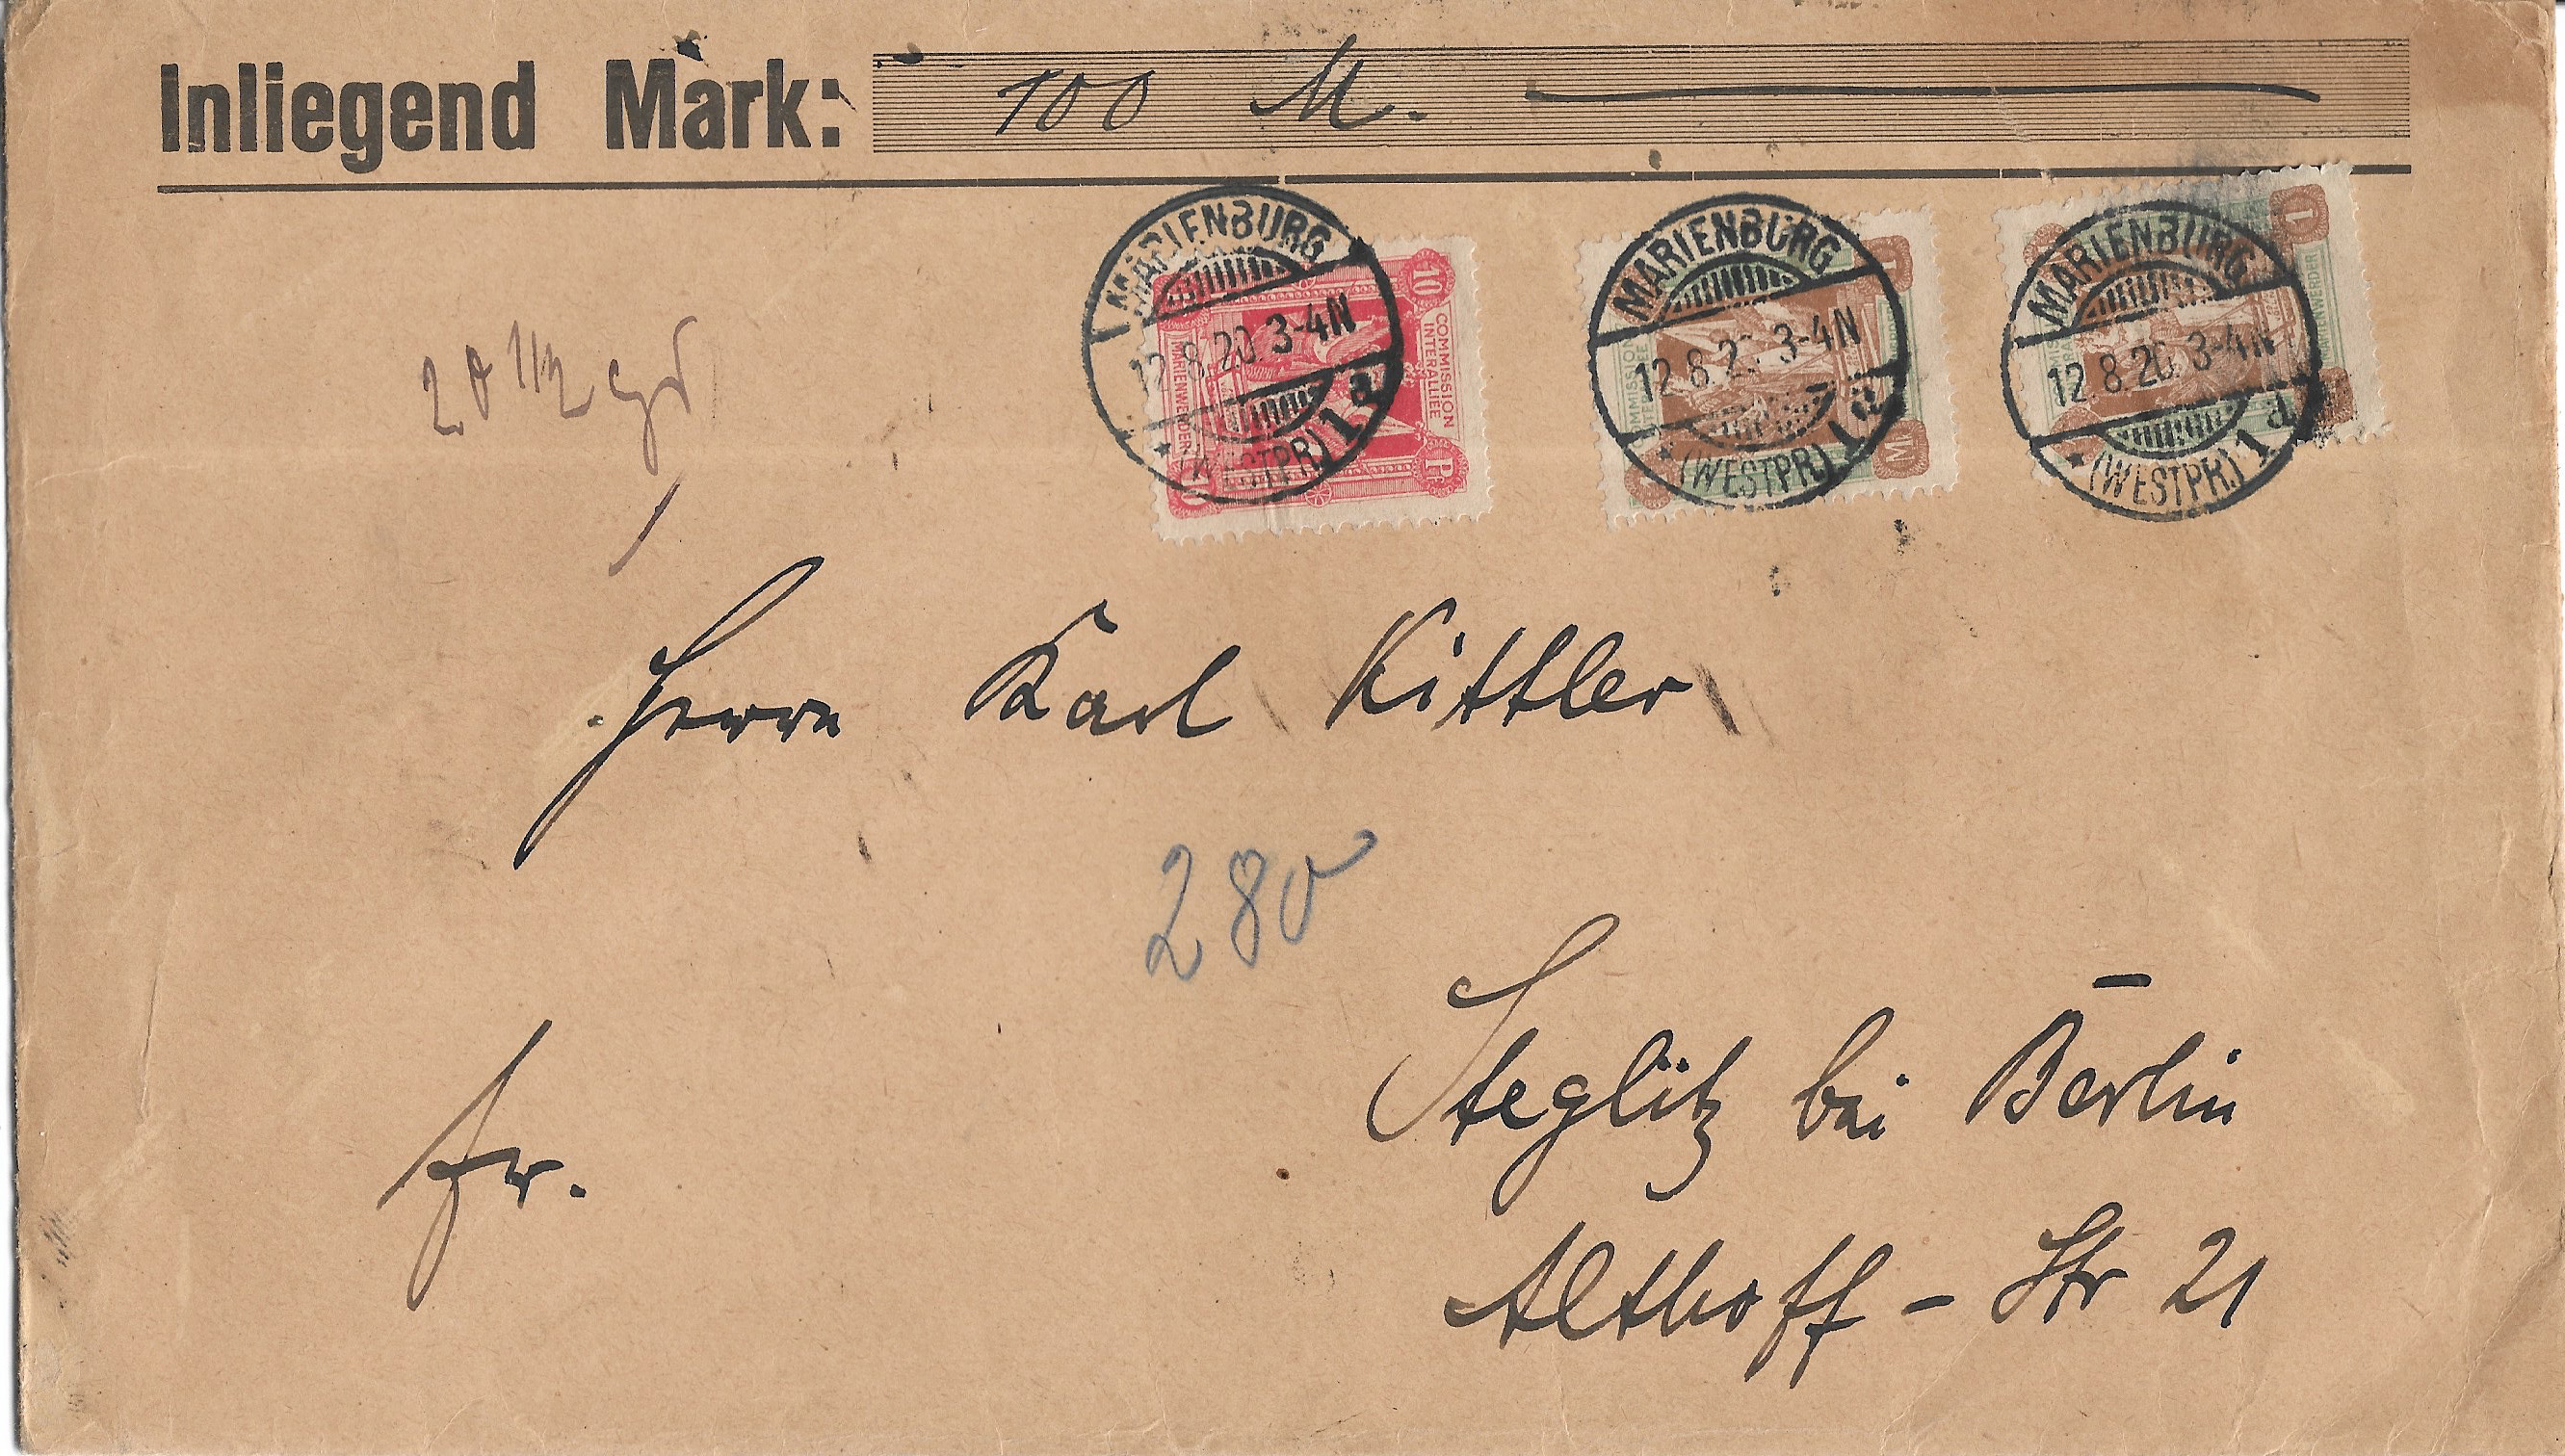 Inliegend Mark: 100 M.
MARIENBURG
12.8.20. 3-4N
* (WESTPR) 1a
10
COMMISSION
INTERALLIÉE
MARIENWERDER
Pf
MARIENBURG
12.8.20. 3-4N
* (WESTPR) 1a
1
COMMISSION
M
MARIENBURG
12.8.20. 3-4N
* (WESTPR) 1a
1
MARIENWERDER
20 1/2 gr
Herrn Karl Kittler
280
Steglitz bei Berlin
fr.
Althoff - Str 21